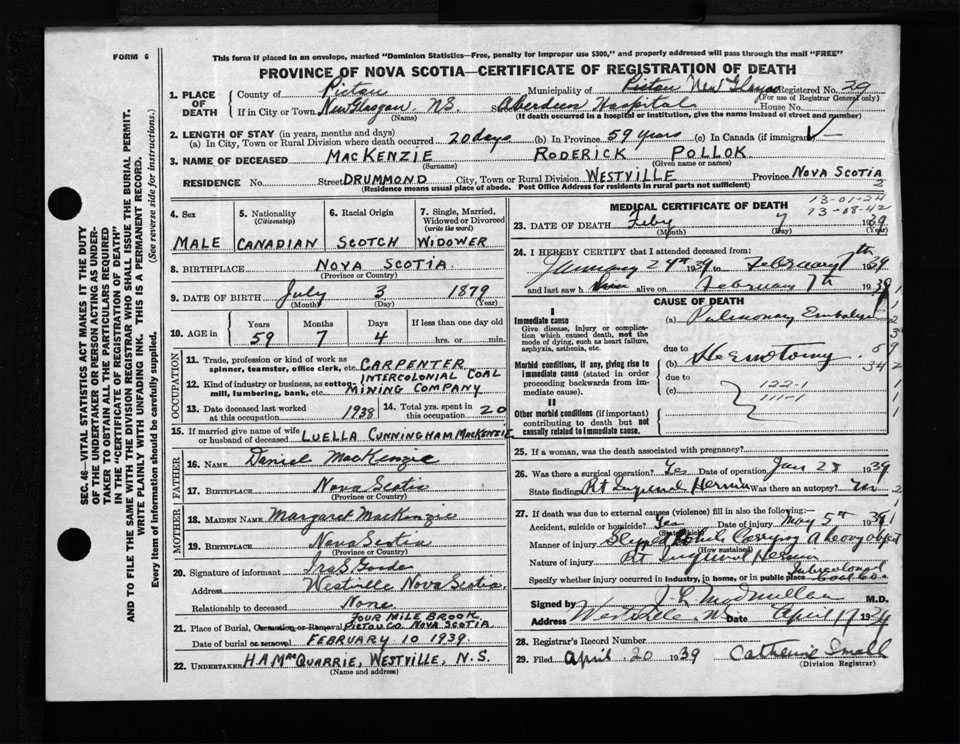 FORM 6
This form if placed in an envelope, marked "Dominion Statistics—Free, penalty for improper use $300," and properly addressed will pass through the mail "FREE"
PROVINCE OF NOVA SCOTIA—CERTIFICATE OF REGISTRATION OF DEATH
1. PLACE OF DEATH
County of Pictou Municipality of Pictou New Glasgow Registered No. 29
(For use of Registrar General only)
If in City or Town New Glasgow, N.S. Street Aberdeen Hospital House No.
(Name) (If death occurred in a hospital or institution, give the name instead of street and number)
2. LENGTH OF STAY (in years, months and days)
(a) In City, Town or Rural Division where death occurred 20 days (b) In Province 59 years (c) In Canada (if immigrant) ✓ —
3. NAME OF DECEASED MACKENZIE RODERICK POLLOK.
(Surname) (Given name or names)
RESIDENCE No. Street DRUMMOND City, Town or Rural Division WESTVILLE Province NOVA SCOTIA
(Residence means usual place of abode. Post Office Address for residents in rural parts not sufficient)
2
4. Sex MALE
5. Nationality (Citizenship) CANADIAN
6. Racial Origin SCOTCH
7. Single, Married, Widowed or Divorced (write the word) WIDOWER
8. BIRTHPLACE NOVA SCOTIA.
(Province or Country)
9. DATE OF BIRTH July 3 1879
(Month) (Day) (Year)
10. AGE in Years Months Days If less than one day old
59 7 4 hrs. or min.
OCCUPATION
11. Trade, profession or kind of work as spinner, teamster, office clerk, etc. CARPENTER
12. Kind of industry or business, as cotton mill, lumbering, bank, etc. INTERCOLONIAL COAL MINING COMPANY
13. Date deceased last worked at this occupation 1938
14. Total yrs. spent in this occupation 20
15. If married give name of wife or husband of deceased LUELLA CUNNINGHAM MACKENZIE
FATHER
16. NAME Daniel MacKenzie
17. BIRTHPLACE Nova Scotia
(Province or Country)
MOTHER
18. MAIDEN NAME Margaret MacKenzie
19. BIRTHPLACE Nova Scotia
(Province or Country)
20. Signature of informant
Address Westville Nova Scotia.
Relationship to deceased None
21. Place of Burial, Cremation or Removal FOUR MILE BROOK PICTOU CO. NOVA SCOTIA.
Date of burial or removal FEBRUARY 10 1939.
22. UNDERTAKER H.A. MacQUARRIE, WESTVILLE, N.S.
(Name and address)
MEDICAL CERTIFICATE OF DEATH
13-01-24
13-08-42
23. DATE OF DEATH Feby 7 1939
(Month) (Day) (Year)
24. I HEREBY CERTIFY that I attended deceased from:
January 24th 1939 to February 7th 1939
and last saw him alive on February 7th 1939
CAUSE OF DEATH
I
Immediate cause (a) Pulmonary Embolism
Give disease, injury or complication which caused death, not the mode of dying, such as heart failure, asphyxia, asthenia, etc.
due to
Morbid conditions, if any, giving rise to immediate cause (stated in order proceeding backwards from immediate cause). (b) Herniotomy.
due to
(c)
122-1
111-1
II
Other morbid conditions (if important) contributing to death but not causally related to immediate cause.
25. If a woman, was the death associated with pregnancy?
26. Was there a surgical operation? Yes Date of operation Jan 28 1939
State finding Rt Inguinal Hernia Was there an autopsy? no
27. If death was due to external causes (violence) fill in also the following:—
Accident, suicide or homicide? Yes Date of injury May 5th 1938
(State which)
Manner of injury Slipped while Carrying A heavy object
(How sustained)
Nature of injury Rt Inguinal Hernia
Specify whether injury occurred in industry, in home, or in public place Intercolonial Coal Co.
Signed by M.D.
Address Westville, N.S. Date April 17 1939
28. Registrar's Record Number
29. Filed April 20 1939 Catherine Small
(Division Registrar)
SEC. 46—VITAL STATISTICS ACT MAKES IT THE DUTY
OF THE UNDERTAKER OR PERSON ACTING AS UNDER-
TAKER TO OBTAIN ALL THE PARTICULARS REQUIRED
IN THE "CERTIFICATE OF REGISTRATION OF DEATH"
AND TO FILE THE SAME WITH THE DIVISION REGISTRAR WHO SHALL ISSUE THE BURIAL PERMIT.
WRITE PLAINLY WITH UNFADING INK. THIS IS A PERMANENT RECORD.
Every item of information should be carefully supplied. (See reverse side for instructions.)